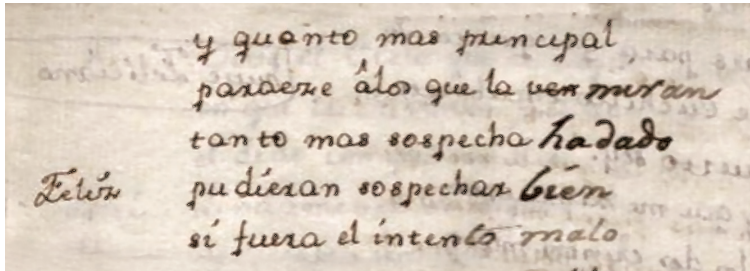 y quanto mas principal
pareze âlos que la ven miran
tanto mas sospecha ha dado
Feliz pudieran sospechar bien
si fuera el intento malo